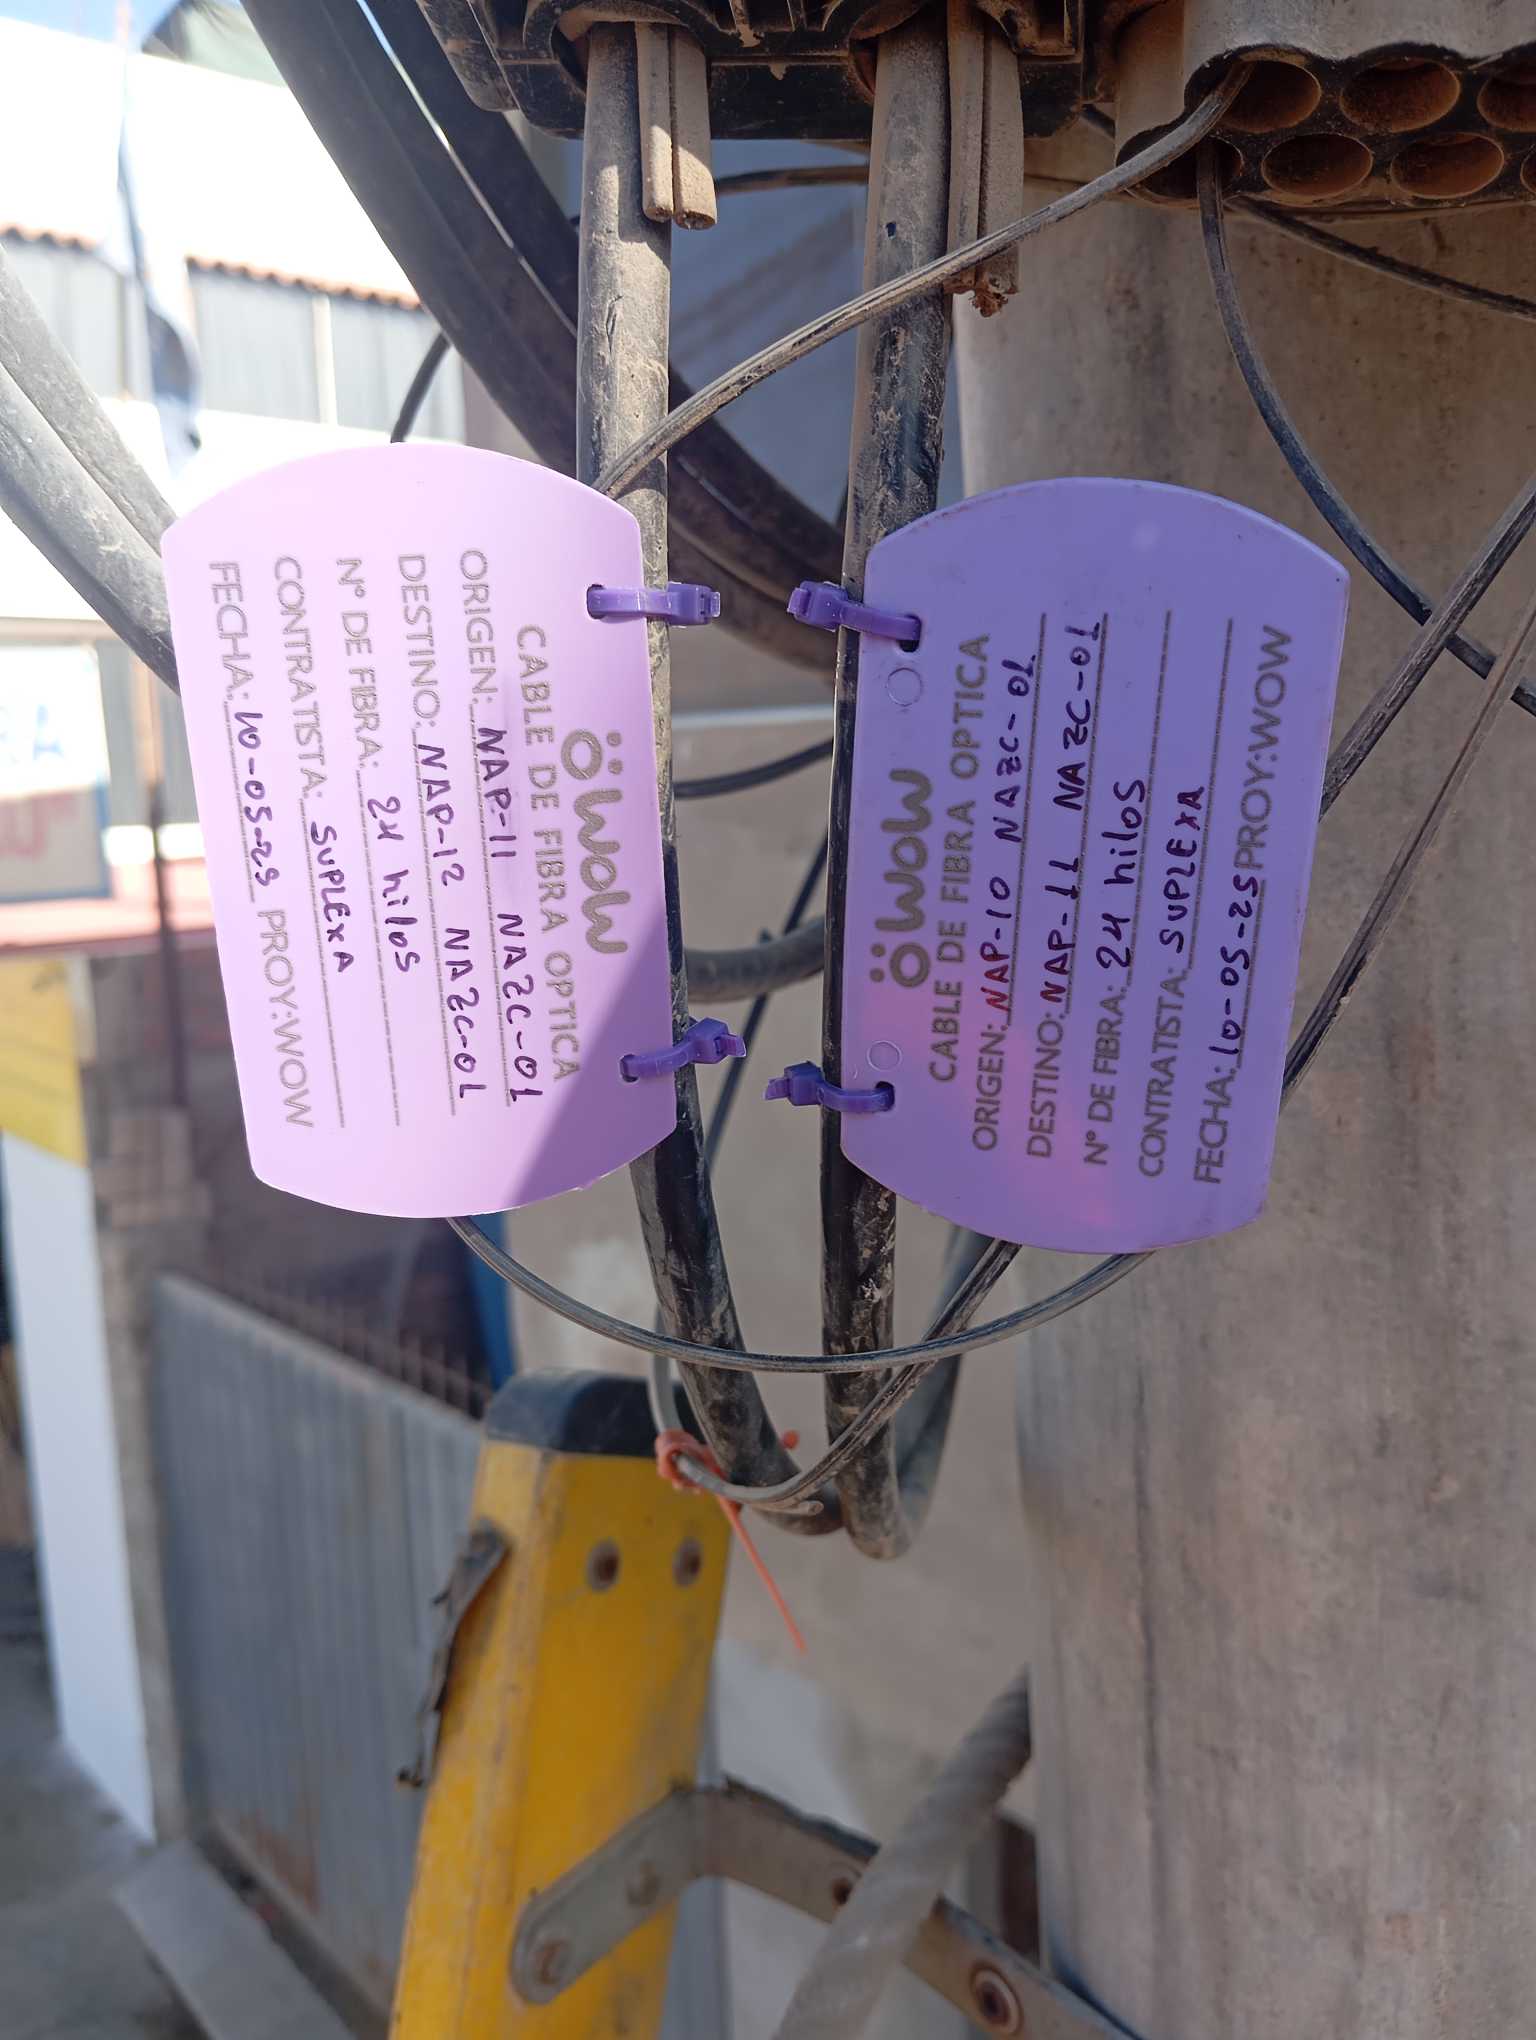 WOW
CABLE DE FIBRA OPTICA
ORIGEN: NAP-11 NAZC-01
DESTINO: NAP-12 NAZC-01
N° DE FIBRA: 24 hilos
CONTRATISTA: SUPLEXA
FECHA: 10-05-25 PROY:WOW
WOW
CABLE DE FIBRA OPTICA
ORIGEN: NAP-10 NAZC-01
DESTINO: NAP-11 NAZC-01
N° DE FIBRA: 24 hilos
CONTRATISTA: SUPLEXA
FECHA: 10-05-25 PROY:WOW